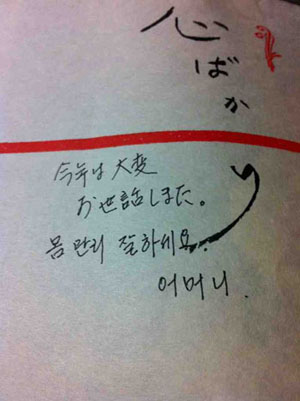 心ばかり
今年は大変
お世話しまた。
몸 관리 잘하세요.
어머니.